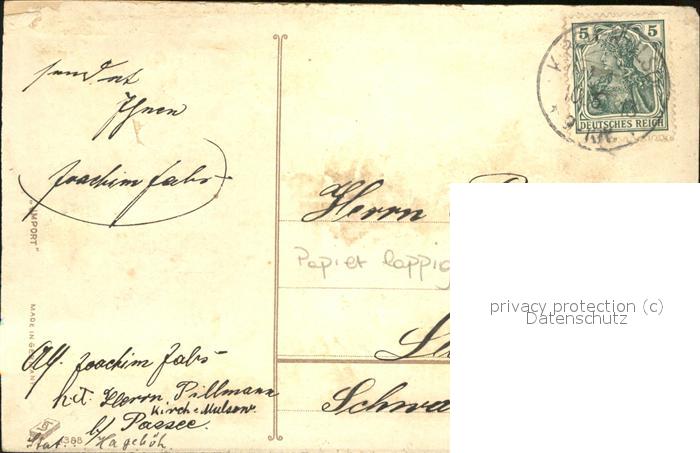 sendet
Ihnen
Joachim Jabs
"IMPORT"
MADE IN GERMANY
Abs. Joachim Jabs
bei Herrn Pillmann
Kirch-Mulsow
b/ Passee.
Stat. Hageböh.
388
5 5
DEUTSCHES REICH
Herrn
Papier lappig
Schwa
privacy protection (c)
Datenschutz